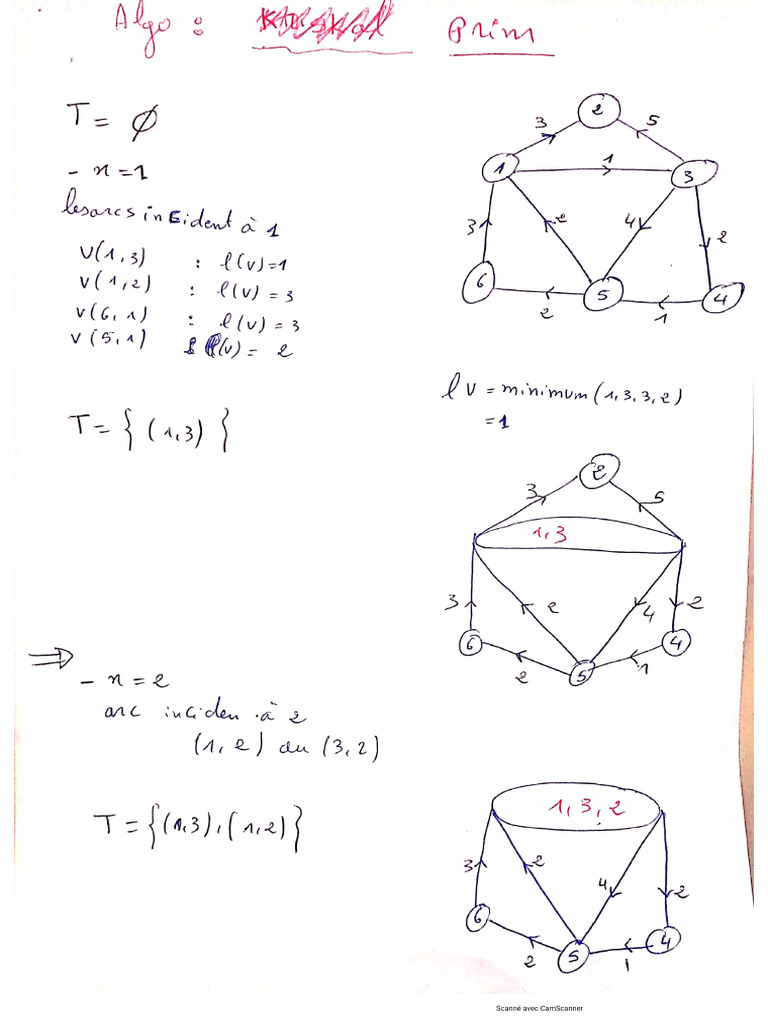 Algo : Prim
T = ∅
- x = 1
les arcs incident à 1
U(1,3) : l(v)=1
v(1,2) : l(v) = 3
v(6,1) : l(v) = 3
v(5,1) l(v) = 2
2
3
5
1
1
3
3
2
4
2
6
5
4
2
1
l v = minimum(1,3,3,2)
= 1
T = { (1,3) }
2
3
5
1,3
3
2
4
2
6
5
4
2
1
⇒
- x = 2
arc inciden à 2
(1,2) au (3,2)
T = {(1,3), (1,2)}
1,3,2
3
2
4
2
6
5
4
2
1
Scanné avec CamScanner